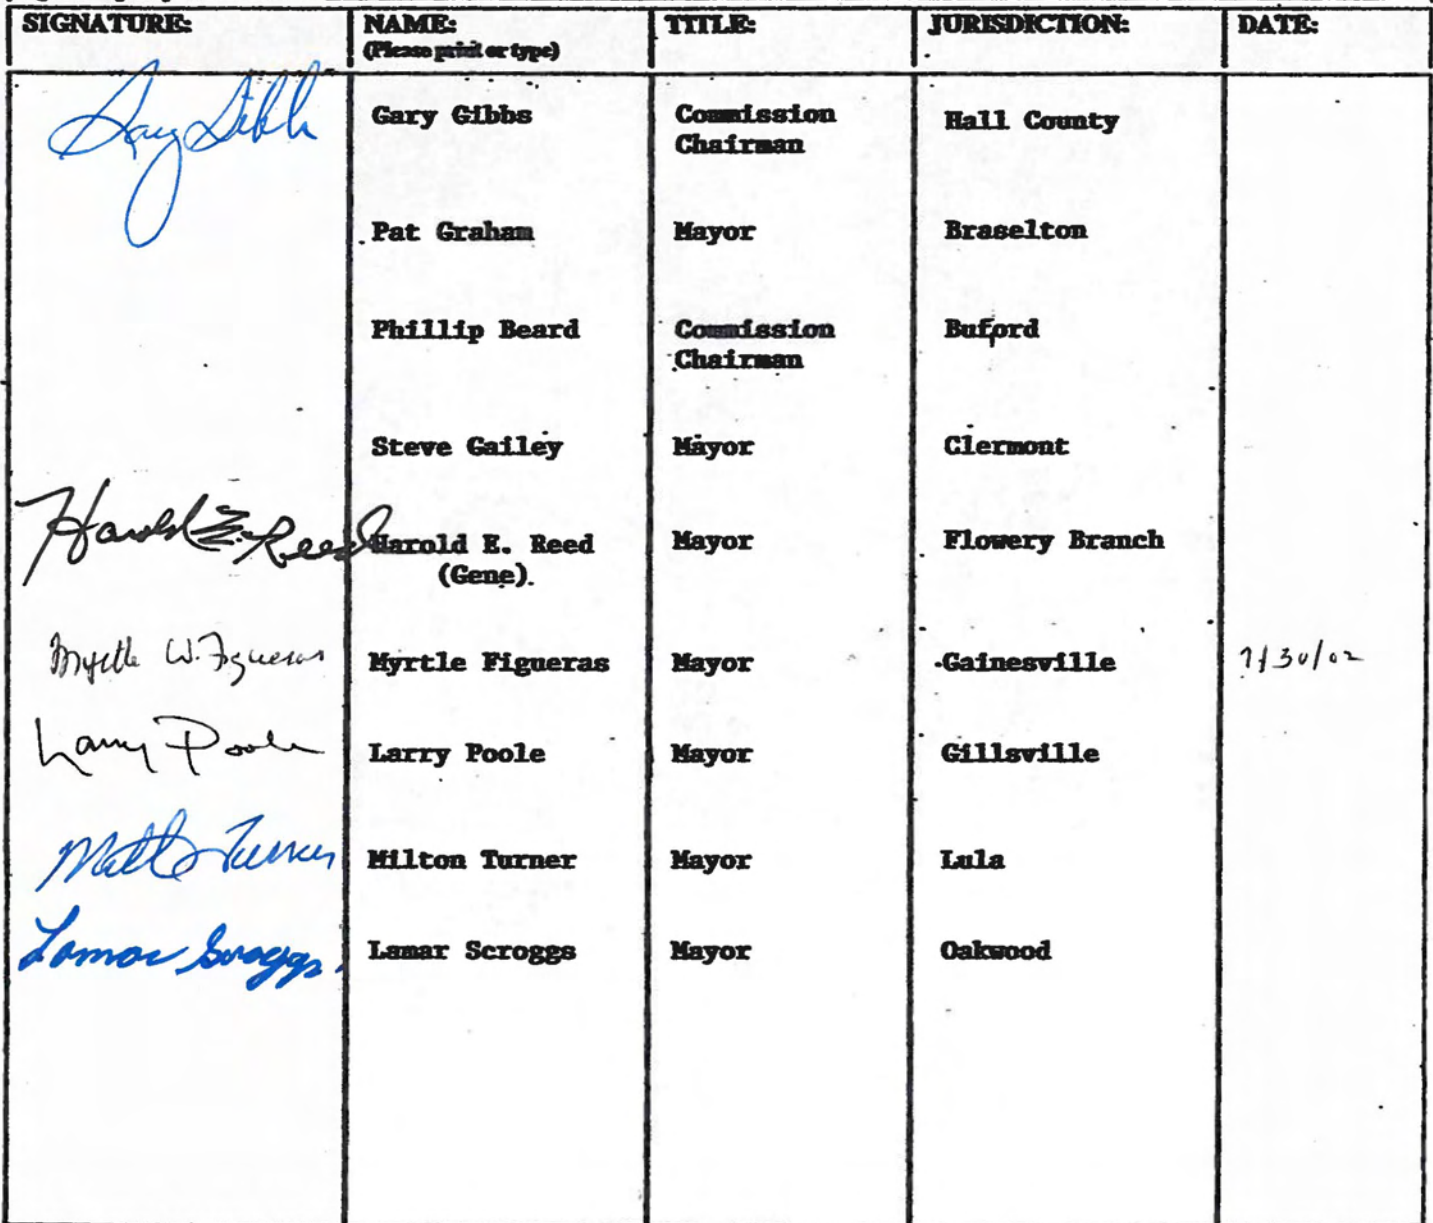 SIGNATURE: NAME: TITLE: JURISDICTION: DATE:
(Please print or type)
Gary Gibbs Gary Gibbs Commission Hall County
Chairman
Pat Graham Mayor Braselton
Phillip Beard Commission Buford
Chairman
Steve Gailey Mayor Clermont
Harold E. Reed Harold E. Reed Mayor Flowery Branch
(Gene)
Myrtle W. Figueras Myrtle Figueras Mayor Gainesville 7/30/02
Larry Poole Larry Poole Mayor Gillsville
Milton Turner Milton Turner Mayor Lula
Lamar Scroggs Lamar Scroggs Mayor Oakwood